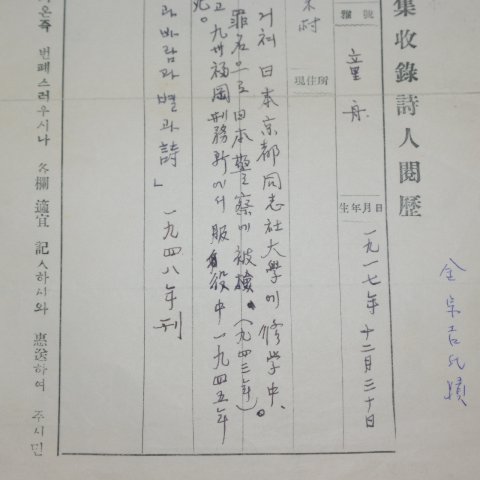 集收錄詩人閱歷
雅號
童舟
生年月日
一九一七年 十二月三十日
現住所
거쳐 日本京都同志社大學에 修學中、
罪名으로 日本警察에 被檢。(一九四三年)
고 九州福岡刑務所에서 服役中 一九四五年
과바람과 별과 詩」 一九四八年刊
온즉 번폐스러우시나 各欄 適宜 記入하시와 惠送하여 주시면